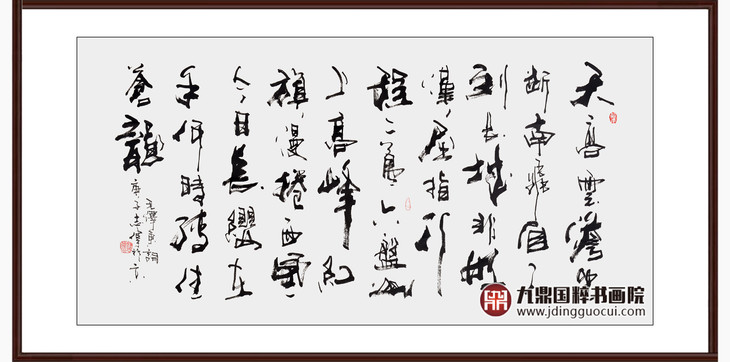 天高雲澹望
断南雁不
到長城非好
漢屈指行
程二萬六盤山
上高峰紅
旗漫捲西風
今日長纓在
手何時縛住
蒼龍
毛澤東詞
庚子志
九鼎国粹书画院
www.jdingguocui.com